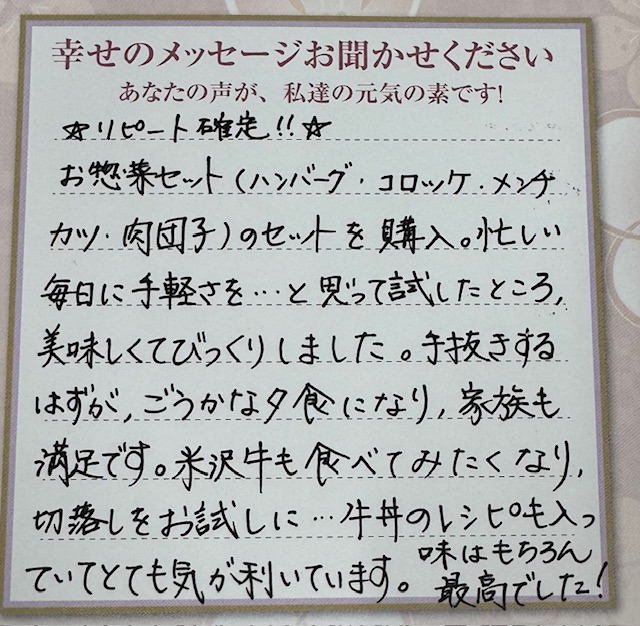 幸せのメッセージお聞かせください
あなたの声が、私達の元気の素です!
☆リピート確定!!☆
お惣菜セット(ハンバーグ・コロッケ・メンチ
カツ・肉団子)のセットを購入。忙しい
毎日に手軽さを…と思って試したところ,
美味しくてびっくりしました。手抜きする
はずが,ごうかな夕食になり,家族も
満足です。米沢牛も食べてみたくなり,
切落しをお試しに…牛丼のレシピも入っ
ていてとても気が利いています。
味はもちろん
最高でした!